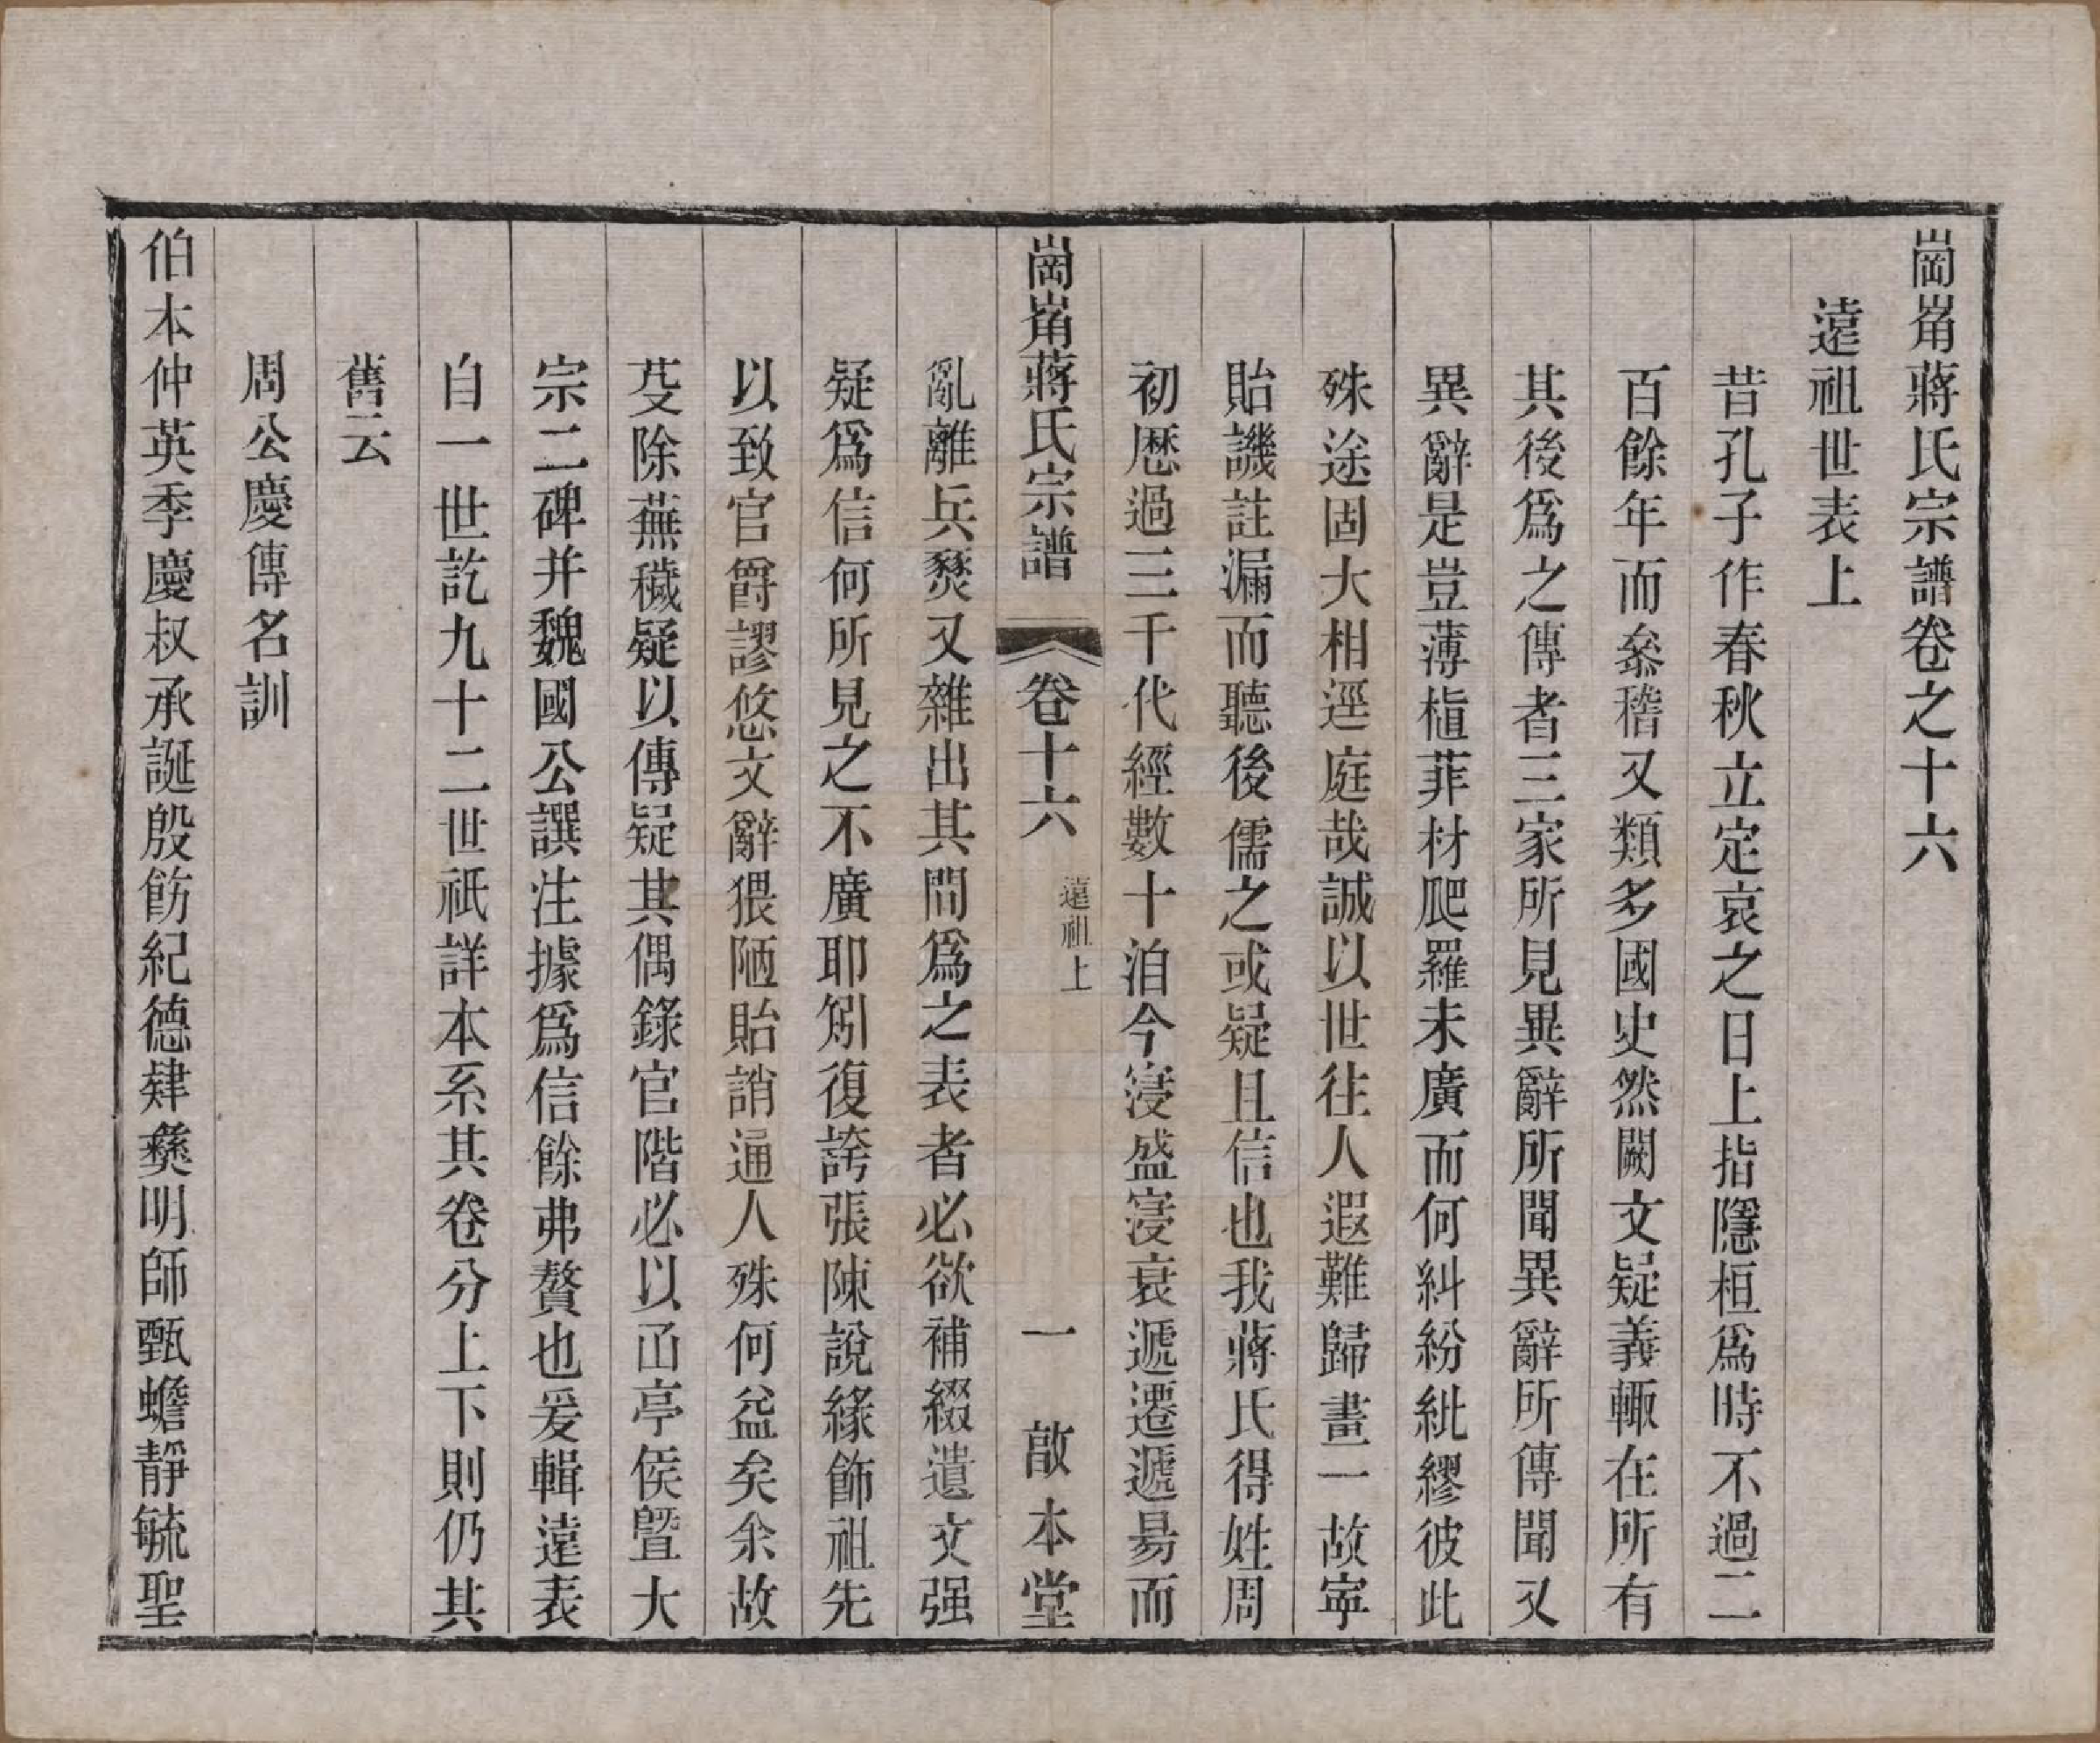 崗㟁蔣氏宗譜卷之十六
遠祖世表上
昔孔子作春秋立定哀之日上指隱桓爲時不過二
百餘年而叅稽又類多國史然闕文疑義輙在所有
其後爲之傳者三家所見異辭所聞異辭所傳聞又
異辭是豈薄植菲材爬羅未廣而何糾紛紕繆彼此
殊途固大相逕庭哉誠以世徃人遐難歸畫一故寧
貽譏註漏而聽後儒之或疑且信也我蔣氏得姓周
初歷過三千代經數十洎今寖盛寖衰遞遷遞昜而
崗㟁蔣氏宗譜
卷十六
遠祖上
一
啟本堂
亂離兵燹又雜出其間爲之表者必欲補綴遺文强
疑爲信何所見之不廣耶矧復誇張陳說緣飾祖先
以致官爵謬悠文辭猥陋貽誚通人殊何益矣余故
芟除蕪穢疑以傳疑其偶錄官階必以㓋亭侯曁大
宗二碑并魏國公譔注據爲信餘弗贅也爰輯遠表
自一世訖九十二世祇詳本系其卷分上下則仍其
舊云
周公慶傳名訓
伯本仲英季慶叔承誕殷飭紀德肄彝明師甄蟾靜毓聖